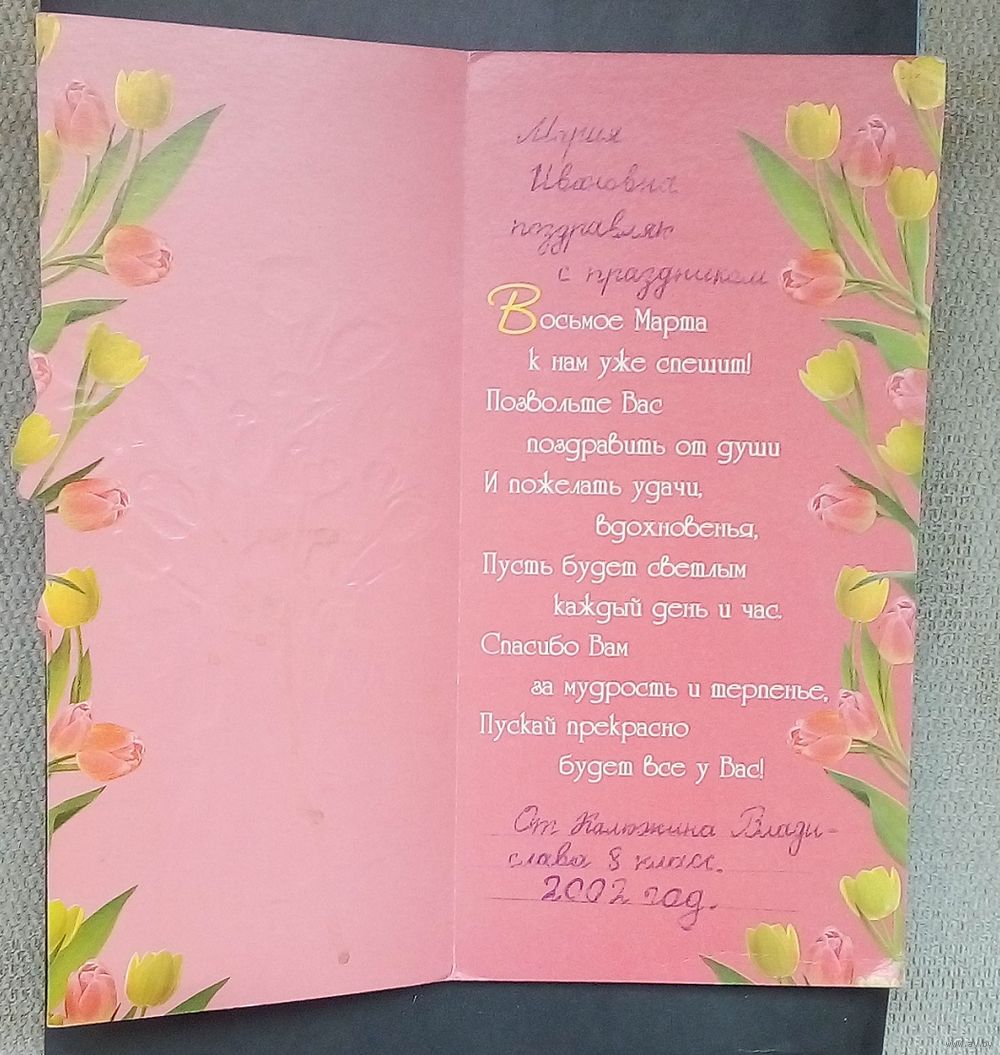 Мария
Ивановна
поздравляю
с праздником
Восьмое Марта
к нам уже спешит!
Позвольте Вас
поздравить от души
И пожелать удачи,
вдохновенья,
Пусть будет светлым
каждый день и час.
Спасибо Вам
за мудрость и терпенье,
Пускай прекрасно
будет все у Вас!
От Калюжина Влади-
слава 8 класс.
2002 год.